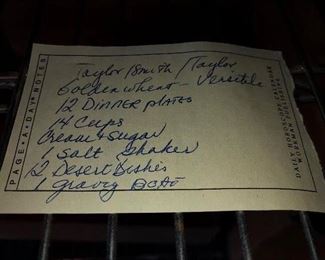 Taylor/Smith/Taylor
Golden wheat - Versatile
12 Dinner plates
14 Cups
Cream + Sugar
1 Salt Shaker
12 Desert Dishes
1 gravy BOAT
PAGE-A-DAY NOTES